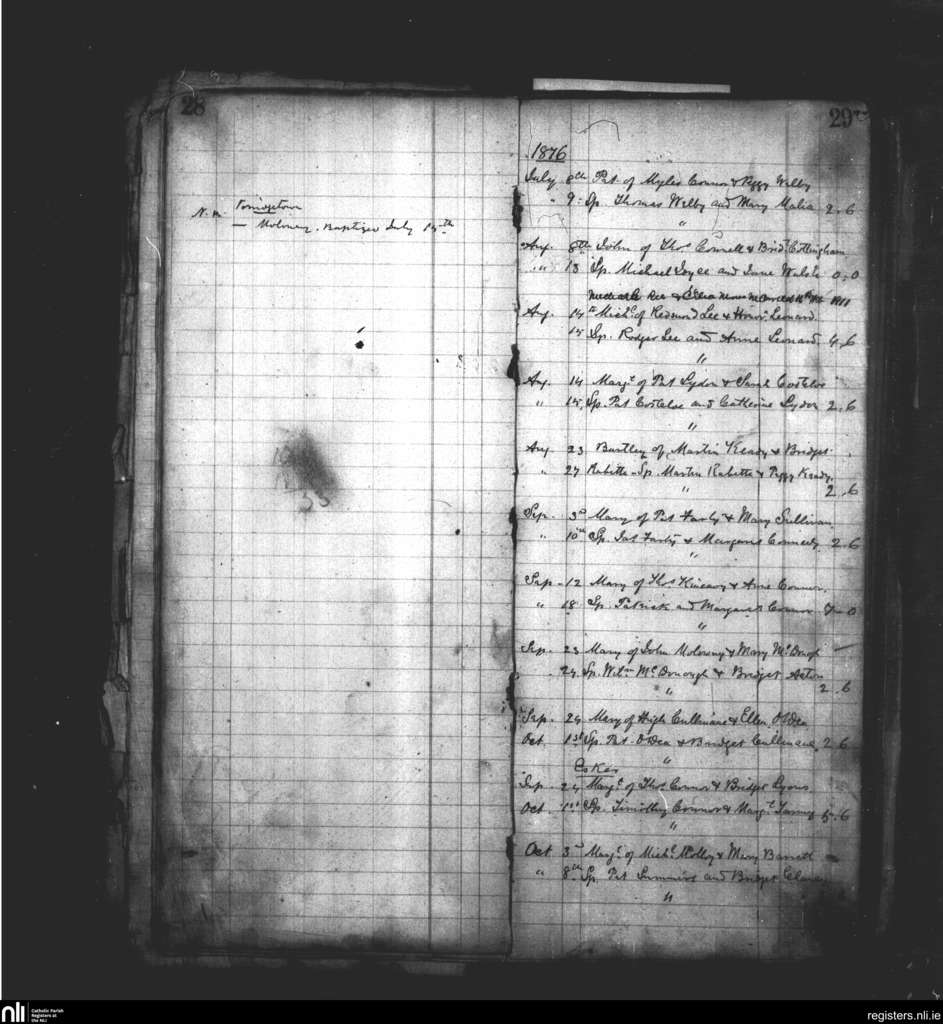 28
N.B.
— Moloney. Baptized July 15th
29
1876
July 8th Pat of Myles Connor & Peggy Welby
" 9 Sp. Thomas Welby and Mary Malia 2.6
"
Aug. 8th John of Thos Connell & Bridt Cottingham
" 13 Sp. Michael Joyce and Jane Walsh 0.0
Lee & 1911
Aug. 14th Michl of Redmond Lee & Honor Leonard.
15 Sp. Rodger Lee and Anne Leonard 4.6
"
Aug. 14 Margt of Pat Lydon & Sarah Costeloe
" 15 Sp. Pat Costeloe and Catherine Lydon 2.6
"
Aug 23 Bartley of Martin Keady & Bridget
" 27 Rabitte - Sp. Martin Rabitte & Peggy Keady.
" 2.6
Sep. 3rd Mary of Pat & Mary Sullivan
" 10th Sp. & Margaret 2.6
"
Sep - 12 Mary of Thos Kineavy & Anne Connor,
" 18 Sp. Patrick and Margaret Connor 0
"
Sep. 23 Mary of John Molowny & Mary McDonogh
24 Sp. Willm McDonough & Bridget Acton
" 2.6
Sep. 24 Mary of Hugh Cullinane & Ellen O'Dea
Oct. 1st Sp. Pat O'Dea & Bridget Cullinane 2.6
"
Esker
Sep. 24 Margt of Thos Connor & Bridget Lyons
Oct. 1st Sp. Timothy Connor & Margt 5.6
"
Oct 3rd Margt of Michl Molloy & Mary Barrett
" 8th Sp. Pat Summers and Bridget
"
nli
Catholic Parish
Registers at
the NLI
registers.nli.ie